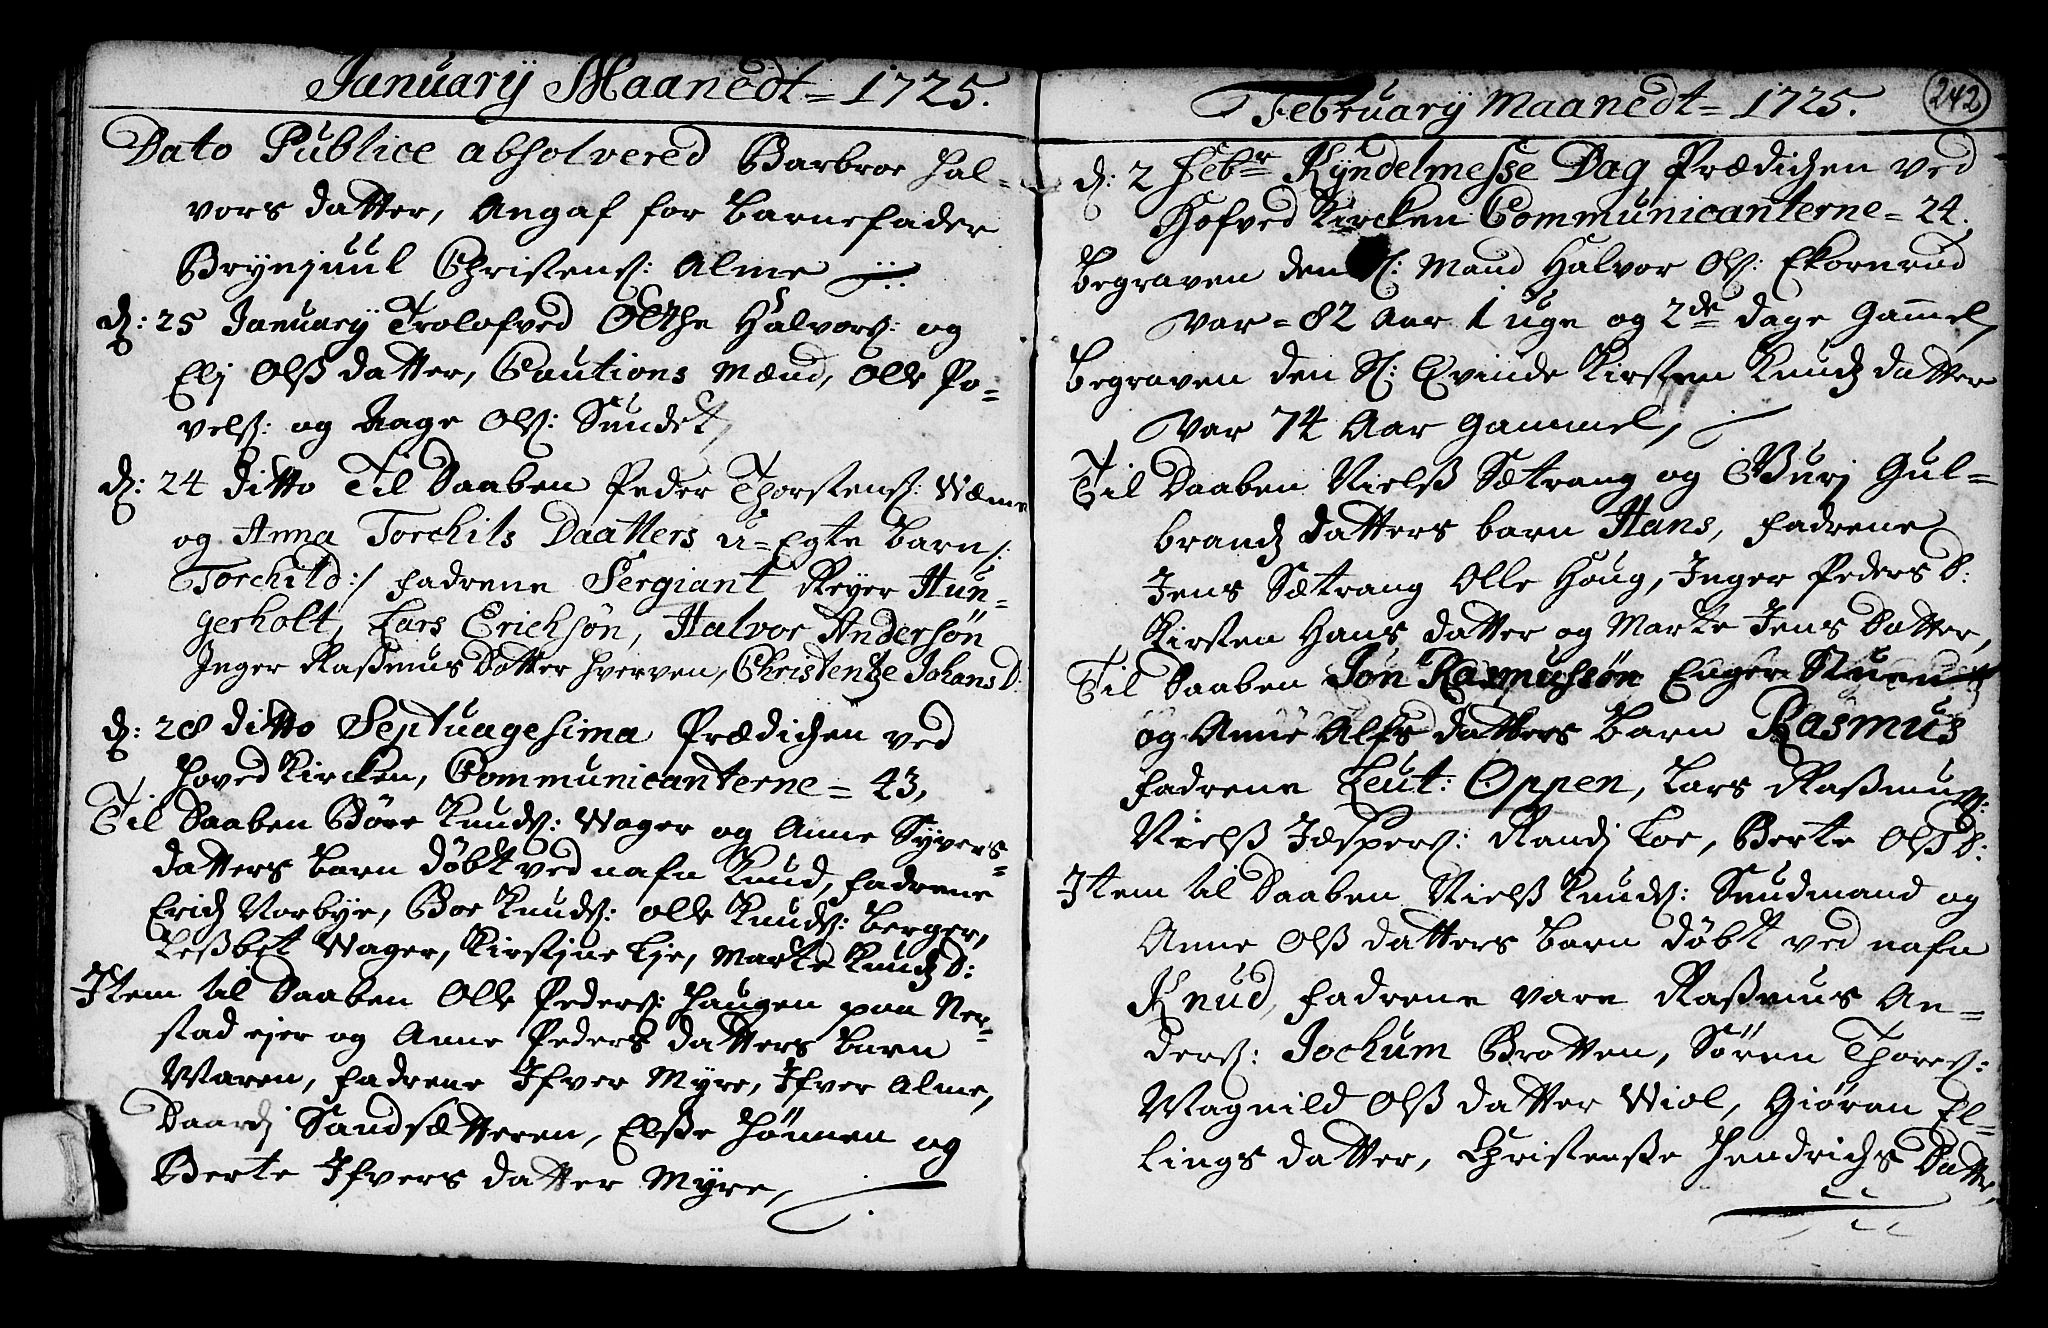 Januarÿ Maanedt = 1725.
Dato Publice absolvered Barbroe Hal=
vors datter, Angaf for Barnefader
Brÿnjuul Christens: Alme
d: 25 Januarÿ Trolofved Olthe Halvors: og
Elj Olss datter, Cautions Mænd, Olle Po=
vels: og Aage Ols: Sundet
d: 24 ditto Til Daaben Peder Thorstens: Wæme
og Anna Torchils Daatters u=Egte barn /:
Torchild :/ fadrene Sergiant Reÿer Hun=
gerholt, Lars Erichsøn, Halvor Andersøn
Inger Rasmus Datter Hverven, Christentze Johans D:
d: 28 ditto Septuagesima Prædichen ved
Hoved Kircken, Communicanterne = 43,
Til Daaben Böre Knuds: Wager og Anne Syvers=
datters barn döbt ved nafn Knud, fadrene
Erich Norbÿe, Boe Knuds: Olle Knuds: Berger,
Lessbet Wager, Kirstine Lje, Marte Knuds D:
Item til Daaben Olle Peders: Haugen paa Ner=
stad ejer og Anne Peders datters barn
Maren, fadrene Ifver Mÿre, Ifver Alme,
Daardj Sandsætteren, Elsse Hönnen og
Berte Ifvers datter Mÿre,
242
Februarÿ Maanedt = 1725.
d: 2 Febr Kÿndelmesse Dag Prædichen ved
Hofved Kircken Communicanterne = 24.
Begraven den Sl: Mand Halvor Ols: Ekornrud
Var = 82 Aar 1 uge og 2de dage Gamel,
Begraven den Sl: Qvinde Kirsten Knuds datter
Var 74 Aar Gammel,
Til Daaben Nielss Sætrang og Burj Gul=
brands datters barn Hans, fadrene
Jens Sætrang Olle Houg, Inger Peders D:
Kirsten Hans datter og Marte Jens Datter,
Til Daaben Jon Rasmussøn Enger
og Anne Alfs datters barn Rasmus
fadrene Leut: Oppen, Lars Rassmuss:
Nielss Jæspers: Randj Loe, Berte Olss D:
Item til Daaben Nielss Knuds: Sundmand og
Anne Olss datters barn döbt ved nafn
Knud, fadrene vare Rassmus An=
ders: Jochum Brotten, Sören Thores:
Magnild Olss datter Wiol, Giöran El=
lings datter, Christensse Hendrichs Datter,